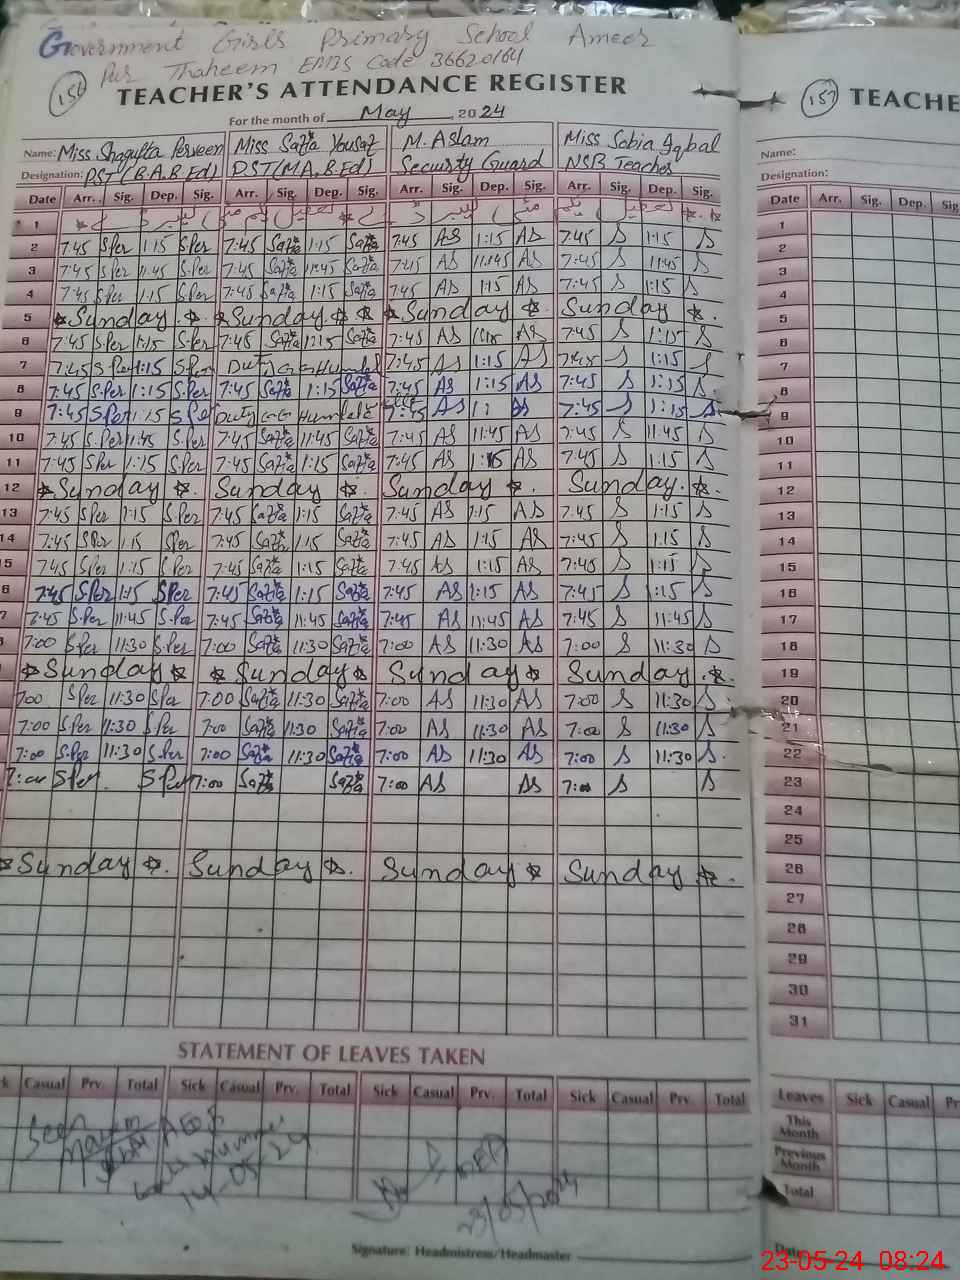 Government Girls Primary School Ameer
Pur Thaheem EMIS Code 36620164
156 TEACHER'S ATTENDANCE REGISTER
For the month of May, 2024
Name: Miss Shagufta Perveen Miss Safia Yousaf M. Aslam Miss Sobia Iqbal
Designation: PST (B.A, B.Ed) PST (M.A, B.Ed) Security Guard NSB Teacher
Date Arr. Sig. Dep. Sig. Arr. Sig. Dep. Sig. Arr. Sig. Dep. Sig. Arr. Sig. Dep. Sig.
1
2 7:45 S.Per 1:15 S.Per 7:45 Safia 1:15 Safia 7:45 AS 1:15 AS 7:45 S 1:15 S
3 7:45 S.Per 11:45 S.Per 7:45 Safia 11:45 Safia 7:45 AS 11:45 AS 7:45 S 11:45 S
4 7:45 S.Per 1:15 S.Per 7:45 Safia 1:15 Safia 7:45 AS 1:15 AS 7:45 S 1:15 S
5 Sunday Sunday Sunday Sunday
6 7:45 S.Per 1:15 S.Per 7:45 Safia 1:15 Safia 7:45 AS 1:15 AS 7:45 S 1:15 S
7 7:45 S.Per 1:15 S.Per Duty 7:45 AS 1:15 AS 7:45 S 1:15 S
8 7:45 S.Per 1:15 S.Per 7:45 Safia 1:15 Safia 7:45 AS 1:15 AS 7:45 S 1:15 S
9 7:45 S.Per 1:15 S.Per Duty 7:45 AS AS 7:45 S 1:15 S
10 7:45 S.Per 11:45 S.Per 7:45 Safia 11:45 Safia 7:45 AS 11:45 AS 7:45 S 11:45 S
11 7:45 S.Per 1:15 S.Per 7:45 Safia 1:15 Safia 7:45 AS 1:15 AS 7:45 S 1:15 S
12 Sunday Sunday Sunday Sunday
13 7:45 S.Per 1:15 S.Per 7:45 Safia 1:15 Safia 7:45 AS 1:15 AS 7:45 S 1:15 S
14 7:45 S.Per 1:15 S.Per 7:45 Safia 1:15 Safia 7:45 AS 1:15 AS 7:45 S 1:15 S
15 7:45 S.Per 1:15 S.Per 7:45 Safia 1:15 Safia 7:45 AS 1:15 AS 7:45 S 1:15 S
6 7:45 S.Per 1:15 S.Per 7:45 Safia 1:15 Safia 7:45 AS 1:15 AS 7:45 S 1:15 S
7 7:45 S.Per 11:45 S.Per 7:45 Safia 11:45 Safia 7:45 AS 11:45 AS 7:45 S 11:45 S
7:00 S.Per 11:30 S.Per 7:00 Safia 11:30 Safia 7:00 AS 11:30 AS 7:00 S 11:30 S
Sunday Sunday Sunday Sunday
7:00 S.Per 11:30 S.Per 7:00 Safia 11:30 Safia 7:00 AS 11:30 AS 7:00 S 11:30 S
7:00 S.Per 11:30 S.Per 7:00 Safia 11:30 Safia 7:00 AS 11:30 AS 7:00 S 11:30 S
7:00 S.Per 11:30 S.Per 7:00 Safia 11:30 Safia 7:00 AS 11:30 AS 7:00 S 11:30 S
7:00 S.Per S.Per 7:00 Safia Safia 7:00 AS AS 7:00 S S
Sunday Sunday Sunday Sunday
STATEMENT OF LEAVES TAKEN
Casual Prv. Total Sick Casual Prv. Total Sick Casual Prv. Total Sick Casual Prv. Total
Seen
14-05-24
23/05/2024
Signature: Headmistress/Headmaster
157 TEACHE
Name:
Designation:
Date Arr. Sig. Dep. Sig
1
2
3
4
5
6
7
8
9
10
11
12
13
14
15
16
17
18
19
20
21
22
23
24
25
26
27
28
29
30
31
Leaves Sick Casual Pr
This Month
Previous Month
Total
Date
23-05-24 08:24